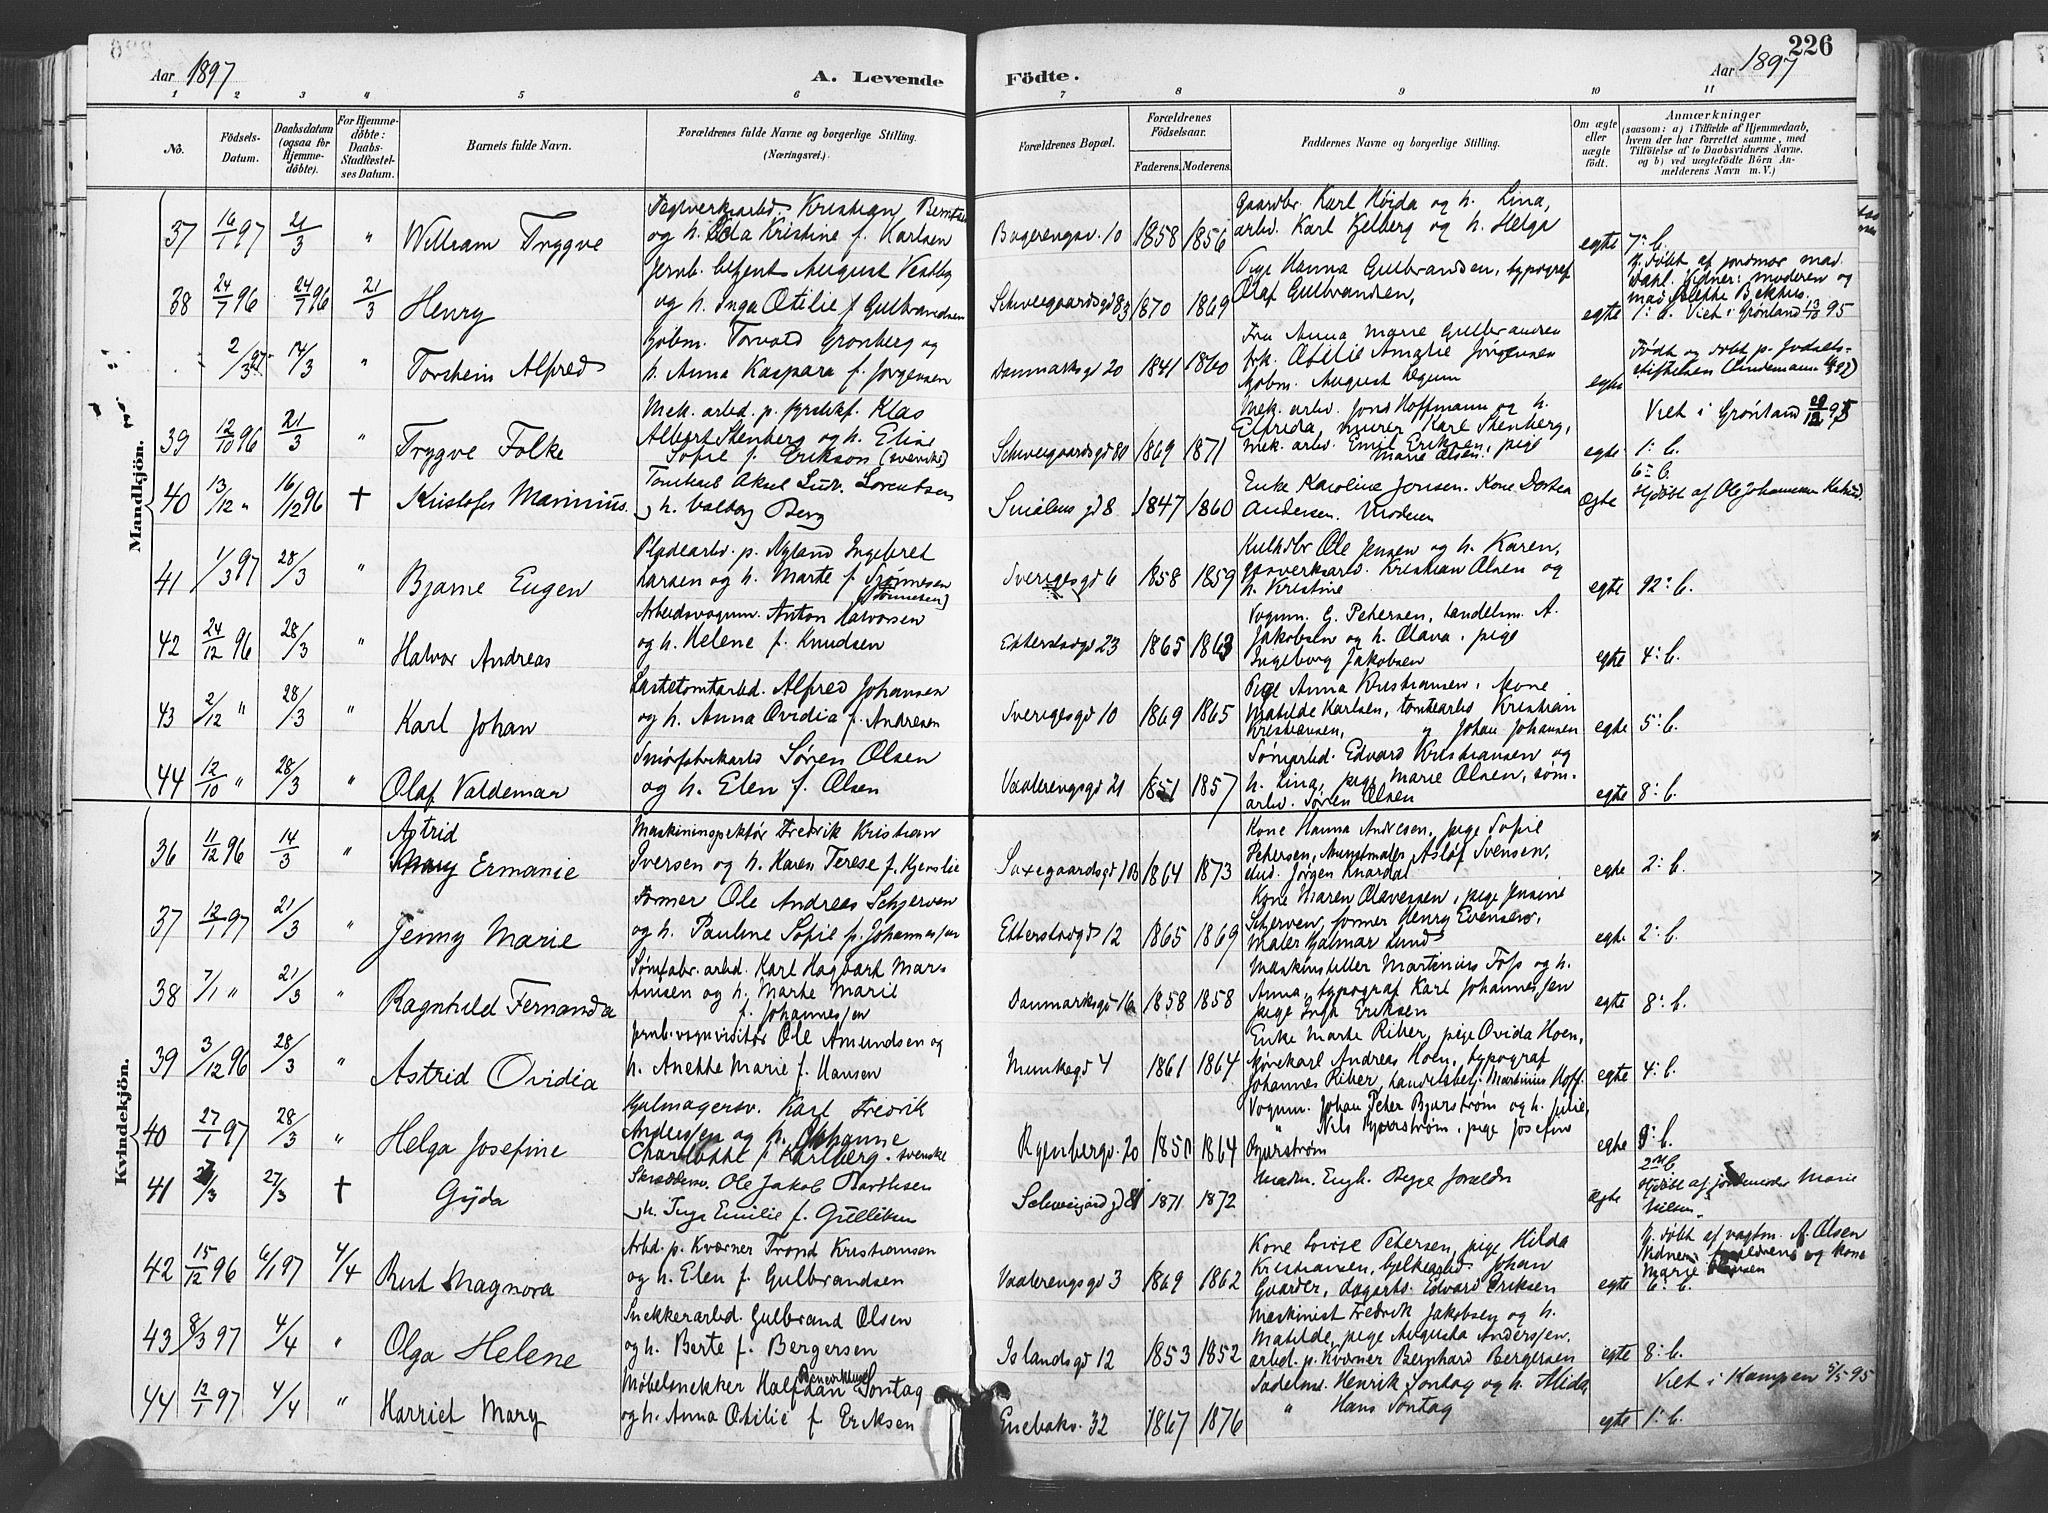 226
Aar 1897
A. Levende
Födte.
Aar 1897
1 2 3 4 5 6 7 8 9 10 11
No.
Födsels-Datum.
Daabsdatum (ogsaa for Hjemmedöbte).
For Hjemmedöbte: Daabs-Stadfæstelses Datum.
Barnets fulde Navn.
Forældrenes fulde Navne og borgerlige Stilling.
(Næringsvei.)
Forældrenes Bopæl.
Forældrenes Födselsaar.
Faderens. Moderens.
Faddernes Navne og borgerlige Stilling.
Om ægte eller uægte födt.
Anmærkninger
(saasom: a) i Tilfælde af Hjemmedaab, hvem der har forrettet samme, med Tilföielse af to Daabsvidners Navne, og b) ved uægtefödte Börn Anmelderens Navn m. V.)
Mandkjön.
37 16/1 97 21/3 " William Trygve
Teglverksarbd. Kristian Berntsen
og h. Ida Kristine f. Karlsen
Bøgerengsv. 10 1858 1856
Gaardbr. Karl Høida og h. Lina,
arbd. Karl Kjelberg og h. Helga
egte 7: b.
38 24/7 96 24/7 96 21/3 Henry
Jernb. betjent August Vestby
og h. Inga Otilie f. Gulbrandsen
Schweigaardsgd 83 1870 1869
Pige Hanna Gulbrandsen, typograf
Olaf Gulbrandsen,
egte
H. døbt af jordmor mad.
Dahl. Vidner: moderen og
1: b. Viet i Grønland 13/10 95
2/3 97 14/3 " Torstein Alfred
Kjøbm. Torvald Grønberg og
h. Anna Kaspara f. Jørgensen
Danmarksgd 20 1841 1860
Fru Anna Marie Gulbrandsen
frk. Otilie Amalie Jørgensen
kjøbm. August Ogum
egte
Født og døbt p. Fødsels-
stiftelsen
39 12/10 96 21/3 " Trygve Folke
Mek. arbd. p. fyrstikf. Klas
Albert Stenberg og h. Eline
Sofie f. Erikson (svenske)
Schweigaardsgd 80 1869 1871
Mek. arbd. Jons Hoffmann og h.
Elfrida, murer Karl Stenberg,
mek. arbd. Emil Eriksen, pige
Marie Olsen.
egte
Viet i Grønland 29/12 95
1: b.
40 13/12 " 16/12 96 † Kristofer Marinius.
Tomtearb Aksel Ludv. Lorentsen
og h. Valborg Berg
Smålens gd 8 1847 1860
Enke Karoline Jensen. Kone Dortea
Andersen. Moderen
Ægte
6= b.
Hjdøbt af Ole Johannesen
41 1/3 97 28/3 " Bjarne Eugen
Pladearbd. p. Nyland Ingebret
Larsen og h. Marte f. Tjønnesen
(Tønnesen)
Sverigesgd 6 1858 1859
Kulhdbr Ole Jensen og h. Karen,
gasverksarb. Kristian Olsen og
h. Kristine
egte 12: b.
42 24/12 96 28/3 " Halvor Andreas
Arbeidsvognm. Anton Halvorsen
og h. Helene f. Knudsen
Etterstadgd 23 1865 1863
Vognm. G. Petersen, handelsm. A.
Jakobsen og h. Olava, pige
Ingeborg Jakobsen
egte 4: b.
43 2/12 " 28/3 " Karl Johan
Lastetomtarbd. Alfred Johansen
og h. Anna Ovidia f. Andresen
Sverigesgd 10 1869 1865
Pige Anna Kristiansen, kone
Matilde Karlsen, tomtearb. Kristian
Kristiansen, og Johan Johansen
egte 5: b.
44 12/10 " 28/3 " Olaf Valdemar
Smørfabrikarbd Søren Olsen
og h. Elen f. Olsen
Vaalerengsgd 21 1851 1857
Sømarbed. Edvard Kristiansen og
h. Lina, pige Marie Olsen, søm-
arbd. Søren Olsen
egte 8: b.
Kvindekjön.
36 11/12 96 14/3 " Astrid
Ermanie
Maskininspektør Fredrik Kristian
Iversen og h. Karen Terese f. Kjenslie
Saxegaardsgd 10B 1864 1873
Kone Hanna Andresen, pige Sofie
Petersen, kunstmaler Asløf Svensen,
stud. Jørgen Knardal
egte 2: b.
37 12/1 97 21/3 " Jenny Marie
Former Ole Andreas Schjerven
og h. Pauline Sofie f. Johannessen
Etterstadgd 12 1865 1869
Kone Maren Olavessen, pige Jensine
Stjerven, former Henry Evensen,
maler Hjalmar Lund
egte 2: b.
38 7/1 " 21/3 " Ragnhild Fernanda
Sømfabr. arbd. Karl Hagbart Mar-
tinsen og h. Marte Marie
f. Johannessen
Danmarksgd 16 1858 1858
Maskinstiller Martinius Foss og h.
Anna, typograf Karl Johannessen
pige Inga Eriksen
egte 8: b.
39 3/12 96 28/3 " Astrid Ovidia
Jernb. vognvisitør Ole Amundsen og
h. Anette Marie f. Hansen
Munkegd 4 1861 1864
Enke Marte Riber, pige Ovida Hoen,
kjørekarl Andreas Hoen, typograf
Johannes Riber, handelsbetj. Martinius Hoff.
egte 4: b.
40 27/1 97 28/3 " Helga Josefine
Hjulmagersv. Karl Fredrik
Anderssen og h. Johanne
Charlotte f. Karlberg. svenske
Ryenbergv. 20 1850 1864
Vognm. Johan Peter Bjurstrøm og h. Julie,
" Nils Bjurstrøm, pige Josefine
Bjurstrøm
egte 9: b.
41 27/3 27/3 † Gyda
Skræddersv. Ole Jakob Barthsen
og h. Inga Emilie f. Gulliksen
Schweigård gd 81 1871 1872
ægte
2= b.
Hjdøbt af jordemoder Marie
Nilsen.
42 15/12 96 6/1 97 4/4 Rut Magnora
Arbd. p. Kværner Trond Kristiansen
og h. Elen f. Gulbrandsen
Vaalerengsgd 3 1869 1862
Kone Lovise Petersen, pige Hilda
Kristiansen, Johan
Gaarder, dagarb. Edvard Eriksen
egte
H. døbt af vagtm. A. Olsen
Vidner: forældrene og kone
Marie
6: b.
43 8/3 97 4/4 " Olga Helene
Snekkerarbd. Gulbrand Olsen
og h. Berte f. Bergersen
Islandsgd 12 1853 1852
Maskinist Fredrik Jakobsen og h.
Matilde, pige Augusta Anderssen,
arbd. p. Kværner Bernhard Bergersen
egte 8: b.
44 12/1 97 4/4 " Harriet Mary
Møbelsnekker Halfdan Sontag
og h. Anna Otilie f. Eriksen
Enebakv. 32 1867 1876
Sadelm. Henrik Sontag og h. Alida
" Hans Sontag
egte
Viet i Kampen 5/5 95
1: b.